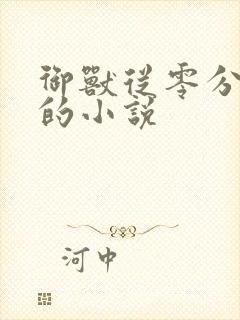 御獸從零分
的小說
河中